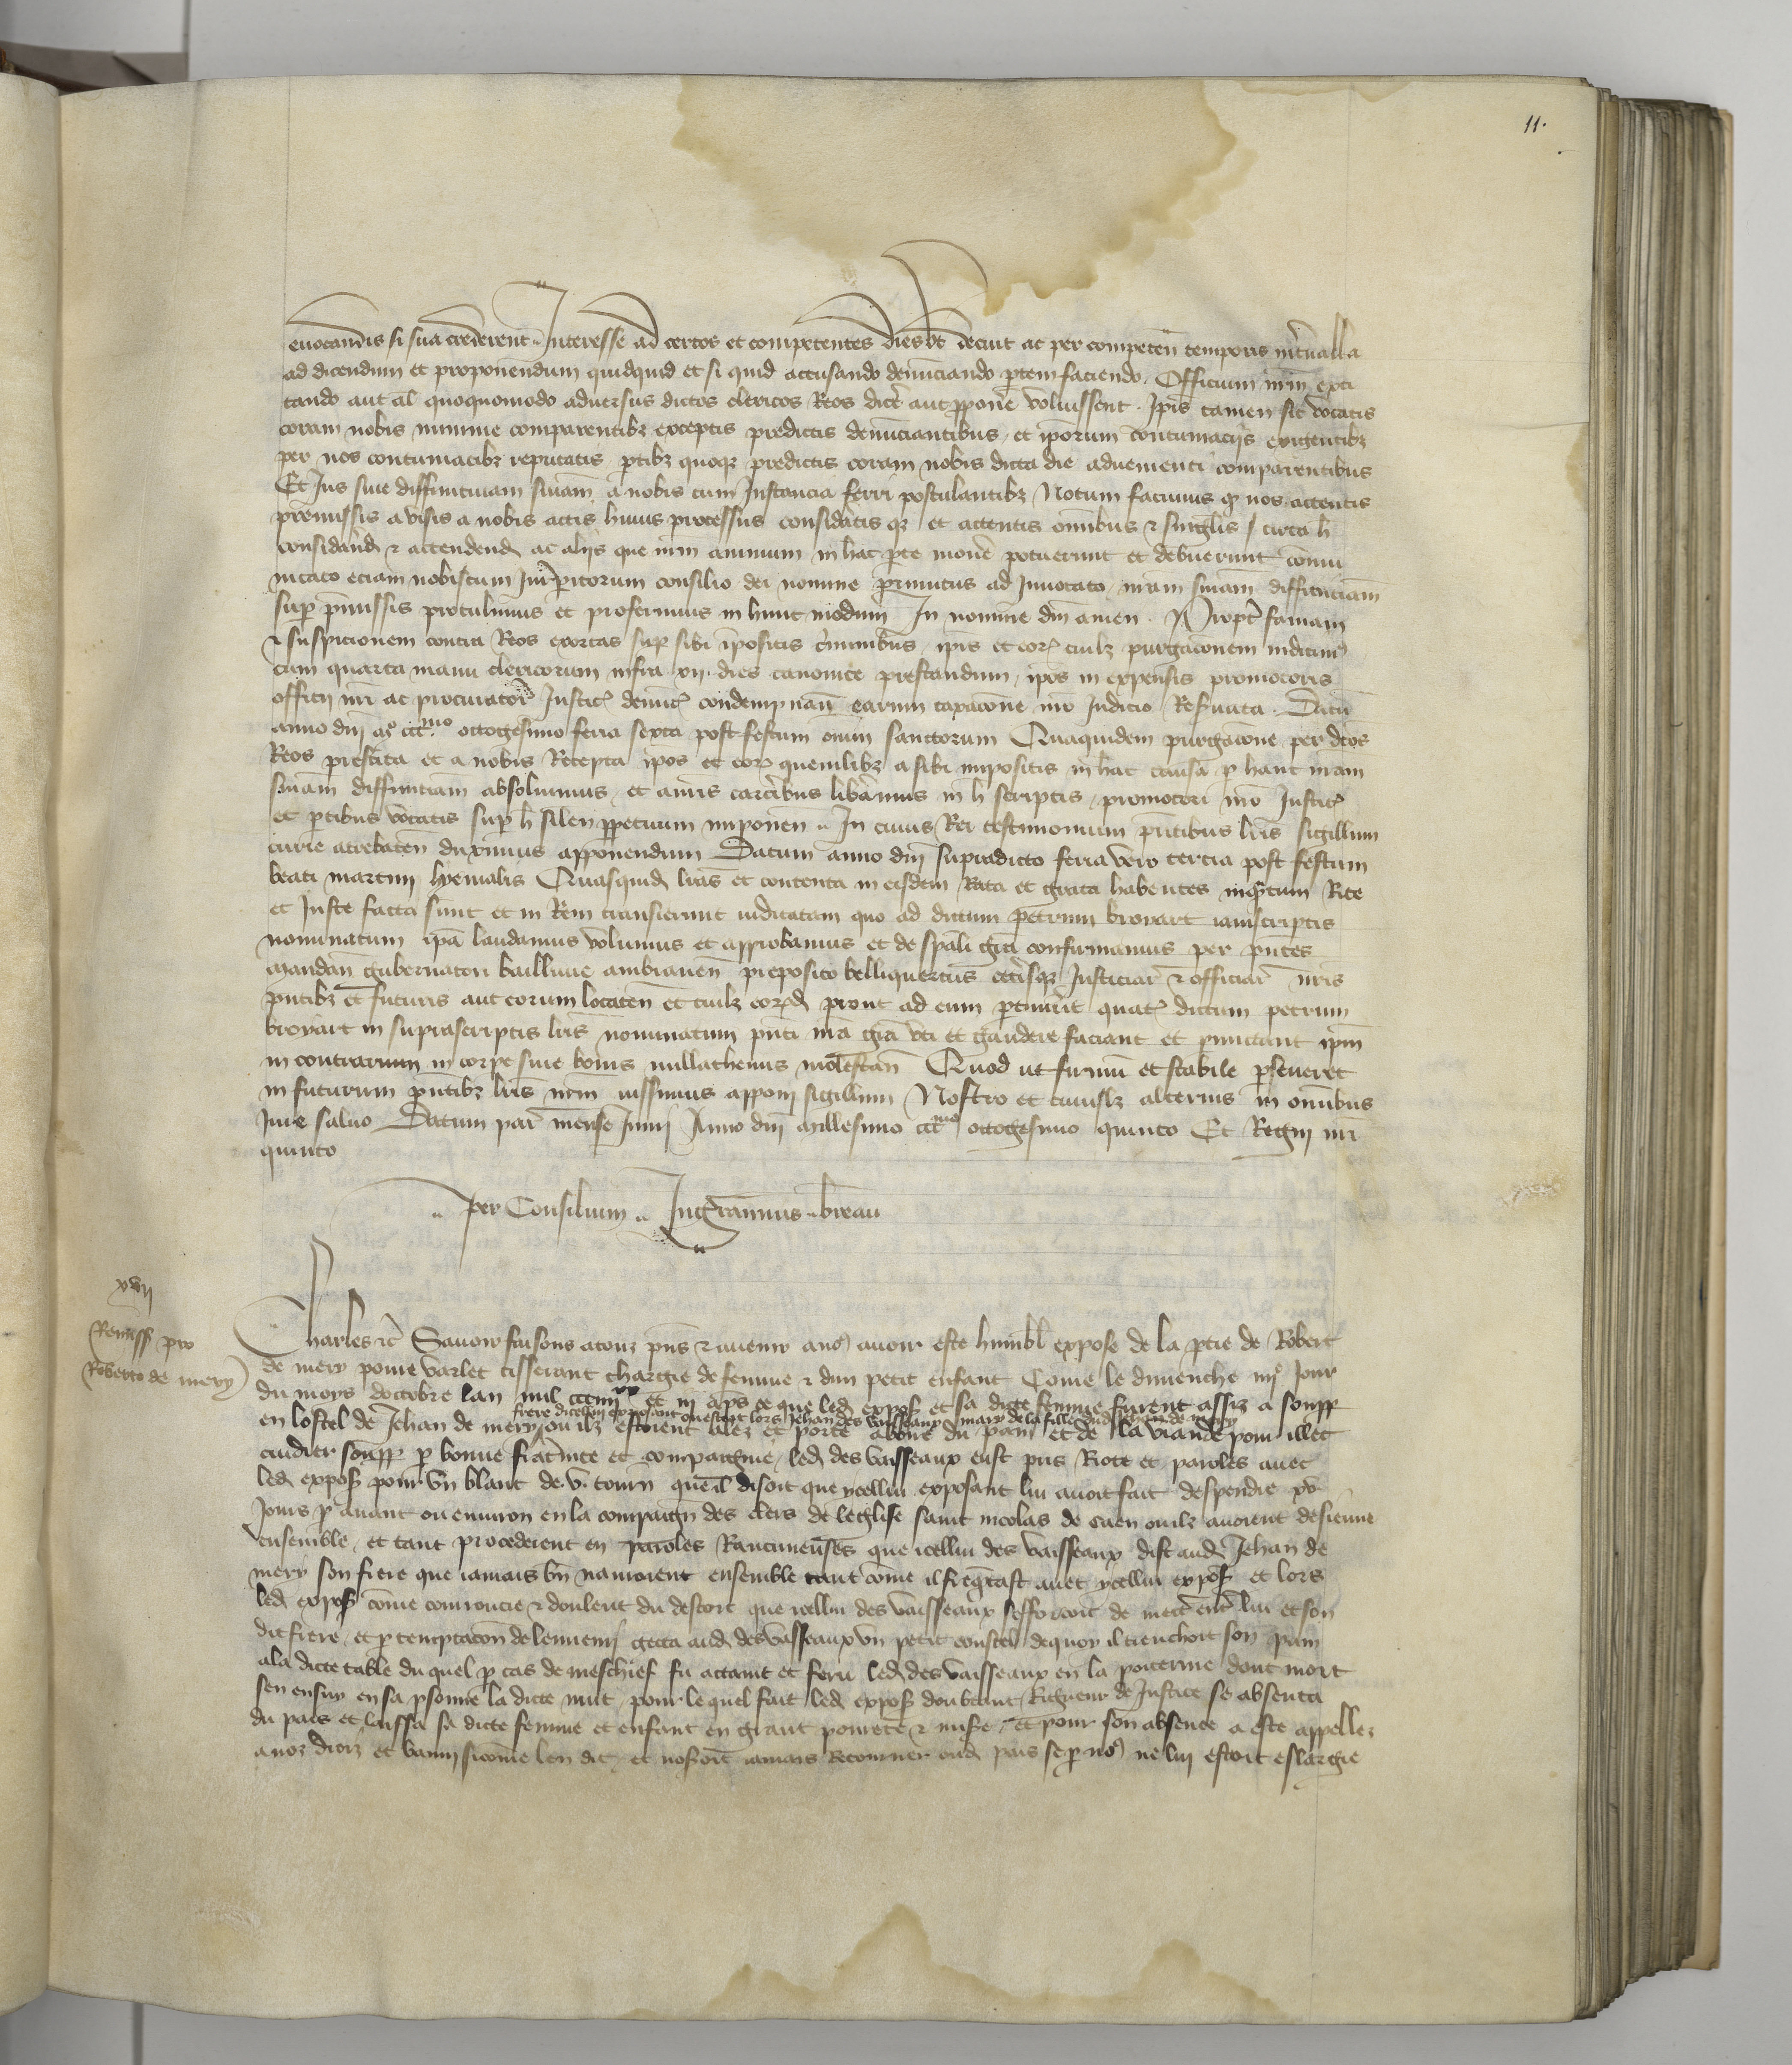 11.
evocandis si sua crederent Interesse ad certos et competentes dies ut decuit ac per competen temporis intervalla
ad dicendum et proponendum quidquid et si quid accusando denunciando ptem faciendo. Officium nrm exci
tando aut al quoquomodo adversus dictos clericos Reos dice aut pponere voluissent. Ipis tamen sic vocatis
coram nobis minime comparentibz exceptis predictis denunciantibus et iporum contumaciis exigentibz
per nos contumacibz reputatis ptibz quoqz predictis coram nobis dicta die advenienti comparentibus
Et Jus sive diffinitivam sniam a nobis cum Instancia ferri postulantibz Notum facimus qz nos attentis
premissis a visis a nobis actis huius processus considatis qz et attentis omibus et singlis circa h
considand et attendend ac aliis que nrm animum in hac pte move potuerunt et debuerunt comu
nicato eciam nobiscum Jurispitorum consilio dei nomine primitus ad Invocato nram sniam diffinitiam
sup pmissis protulimus et proferimus in hunc modum In nomine dni amen. Propt famam
et suspicionem contra Reos exortas sup sibi ipositis criminibus ipis et eorz cuilz purgacionem indicim
cum quarta manu clericorum infra xii. dies canonice prestandum, ipos in expensis promotoris
officii nri ac procurator Justic denunc condempnan earum taxacione nro Iudicio Reservata. Datum
anno dni m ccc mo octogesimo feria sexta post festum omium sanctorum Quaquidem purgacione per dcos
Reos prestita et a nobis Recepta ipos et eorz quemlibz a sibi impositis in hac causa p hanc nram
sniam diffinitiam absolvimus et a nris carceribus liberamus in h scriptis promotori nro Justic
et ptibus vocatis sup h silen ppetuum imponen In cuius Rei testimonium pntibus lris sigillum
curie atrebaten duximus apponendum Datum anno dni supradicto feria vero tercia post festum
beati martini hyemalis Quasquid lras et contenta in eisdem Rata et grata habentes inqantum Rite
et Juste facta sunt et in Rem transierunt iudicatam quo ad dictum petrum broyart iamscriptis
nominatum ipa laudamus volumus et approbamus et de spali gra confirmamus per pntes
Mandan gubernatori baillivie ambianen preposito belliquercus ceterisqz Justiciar et officiar nris
pntibz et futuris aut eorum locaten et cuilz eorzd prout ad eum ptinuerit quatz dictum petrum
broyart in suprascriptis lris nominatum pnti nra gra uti et gaudere faciant et pmittant ipm
in contrarium in corpe sive bonis nullathenus molestan Quod ut firmum et stabile pseveret
in futurum pntibz lris nrm iussimus apponi sigillum Nostro et cuiuslz alterius in omibus
Jure salvo Datum par mense Junii Anno dni Millesimo ccc mo octogesimo quinto Et Regni nri
quinto
per Consilium Ingerannus breau
xvii
Remissi pro
Roberto de mery
Charles etc Savoir faisons a touz pns et avenir a nos avoir este humbl expose de la ptie de Robert
de mery povre varlet tisserant chargie de femme et dun petit enfant Come le dimenche iiie Jour
du moys doctobre lan mil ccciiiixx et iii aps ce que led expos et sa dicte femme furent assiz a soupp
frere dicellui exposant ou estoit lors Jehan des vaisseaux mary de la fille dud Jehan de mery
en lostel de Jehan de mery ou ilz estoient alez et porte avoient du pain et de la viande pour illec
cuidier soupp p bonne fraternite et compaignie, led des vaisseaux eust pris Riote et paroles avec
led expos pour un blanc de v. tourn quil disoit que ycellui exposant lui avoit fait despendre xv
Jours p avant ou environ en la compaign des clers de leglise saint nicolas de caen ou ilz avoient desieune
ensemble, et tant procederent en paroles Rancuneuses que icellui des vaisseaux dist aud Jehan de
mery son frere que iamais bn namoient ensemble tant come il frequentast avec ycellui expos et lors
led expos come courroucie et doulent du descort que icellui des vaisseaux sefforcoit de mectre entre lui et son
dit frere, et p temptacion de lennemi gecta aud des vaisseaux un petit coustel de quoy il trenchoit son pain
a la dicte table du quel p cas de meschief fu attaint et feru led des vaisseaux en la poitrine dont mort
sen ensuy en sa psonne la dicte nuit, pour le quel fait led expos doubtant Rigueur de Justice se absenta
du pais et laissa sa dicte femme et enfant en grant povrete et misere, et pour son absence a este appellez
a noz droiz et banni sicome len dit, et noseroit iamais Retourner oud pais se p nos ne lui estoit eslargie